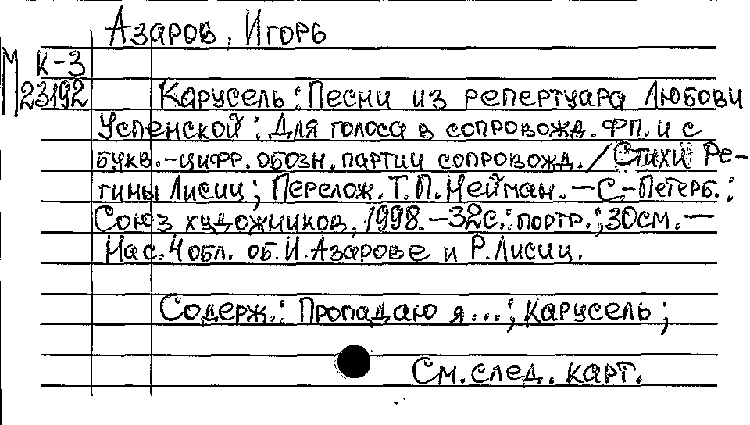 Азаров, Игорь
М К-3
23192
Карусель : Песни из репертуара Любови
Успенской : Для голоса в сопровожд. фп. и с
букв.-цифр. обозн. партии сопровожд. / Стихи Ре-
гины Лисиц ; Перелож. Т.П. Нейман. — С.-Петерб. :
Союз художников, 1998. - 32с. : портр. ; 30см. —
На с. 4 обл. об. И. Азарове и Р. Лисиц.
Содерж. : Пропадаю я... ; Карусель ;
См. след. карт.